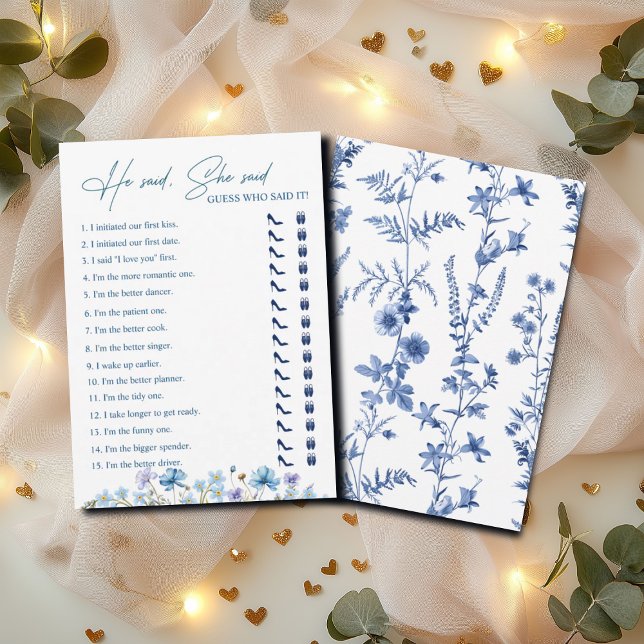 He said, She said
GUESS WHO SAID IT!
1. I initiated our first kiss.
2. I initiated our first date.
3. I said "I love you" first.
4. I'm the more romantic one.
5. I'm the better dancer.
6. I'm the patient one.
7. I'm the better cook.
8. I'm the better singer.
9. I wake up earlier.
10. I'm the better planner.
11. I'm the tidy one.
12. I take longer to get ready.
13. I'm the funny one.
14. I'm the bigger spender.
15. I'm the better driver.